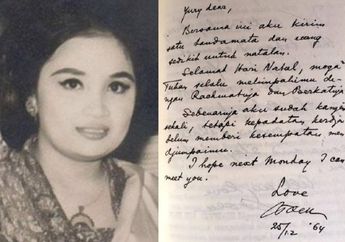 Yury dear,
Bersama ini aku kirim
satu tandamata dan uang
sedikit untuk natalan.
Selamat Hari Natal, moga
Tuhan selalu melimpahimu de-
ngan Rachmatnja dan Berkatnja
Sebenarnja aku sudah kangen
sekali, tetapi kepadatan kerdja
belum memberi kesempatan men-
djumpaimu.
I hope next Monday I can
meet you.
Love
25/12 '64